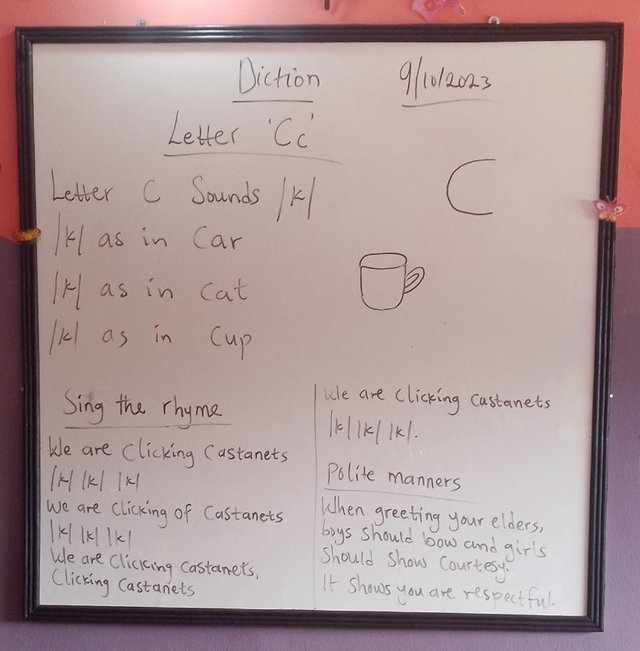 Diction 9/10/2023
Letter 'Cc'
Letter C Sounds /k/
C
/k/ as in Car
/k/ as in Cat
/k/ as in Cup
Sing the rhyme
We are Clicking Castanets
/k/ /k/ /k/
We are Clicking of Castanets
/k/ /k/ /k/
We are Clicking Castanets,
Clicking Castanets
We are Clicking Castanets
/k/ /k/ /k/.
Polite manners
When greeting your elders,
boys should bow and girls
Should Show Courtesy.
It Shows you are respectful.